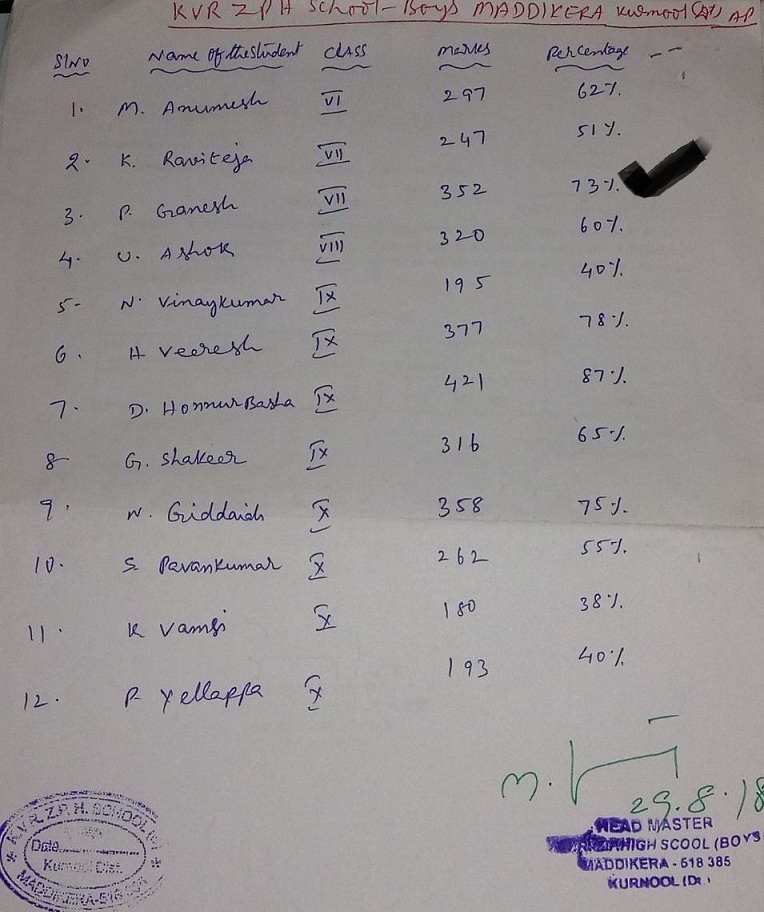 KVR ZPH School-Boys MADDIKERA Kurnool AP
Sl.No Name of the student CLASS marks Percentage
1. M. Anumesh VI 297 62%
2. K. Raviteja VII 247 51%
3. P. Ganesh VII 352 73%
4. U. Ashok VIII 320 60%
5- N. Vinaykumar IX 195 40%
6. H Veeresh IX 377 78%
7. D. Honnur Basha IX 421 87%
8- G. Shakeer IX 316 65%
9. N. Giddaiah X 358 75%
10. S. Pavankumar X 262 55%
11. K Vamsi X 180 38%
12. P. Yellappa X 193 40%
29.8.18
HEAD MASTER
HIGH SCOOL (BOYS
MADDIKERA - 518 385
KURNOOL (Dt.)
K.V.R. Z.P.H. SCHOOL
Date
Kurnool Dist.
MADDIKERA-518